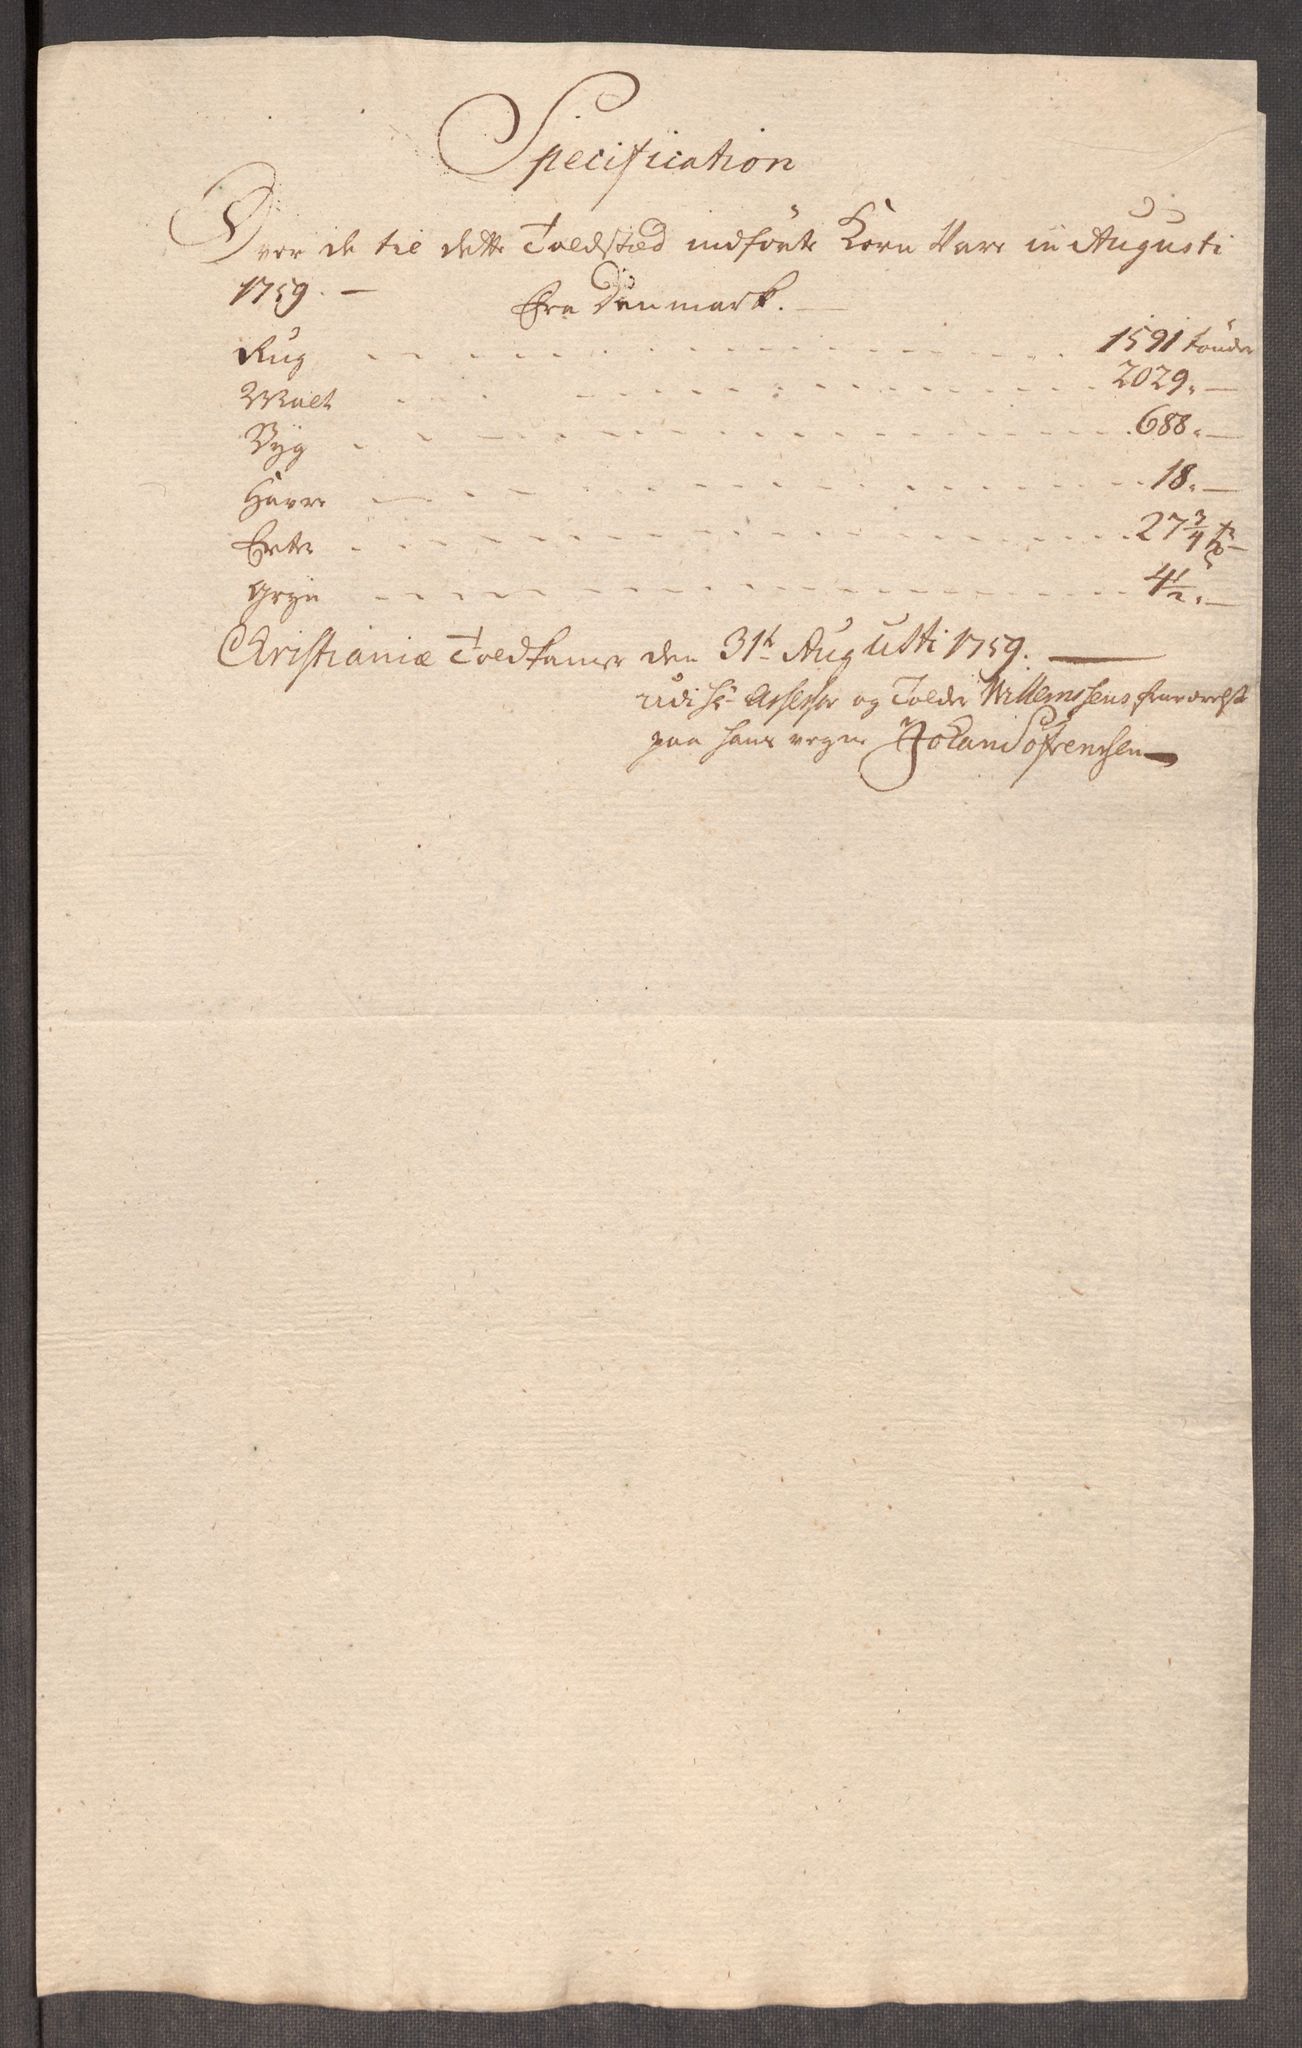 Specification
Over de til dette Toldstæd indförte Korn Vare in Augusti
1759. —
Fra Danmark. —
Rug - - - 1591 tönder
Malt - - - 2029. —
Byg - - - 688. —
Havre - - - 18. —
Erter - - - 27 3/4
Gryn - - - 4 1/2. —
Christianiæ Toldkamer den 31t Augusti 1759. —
udi Hr Assessor og Tolder Willemsens fraværelse
paa hans vegne Johan Söfrensen